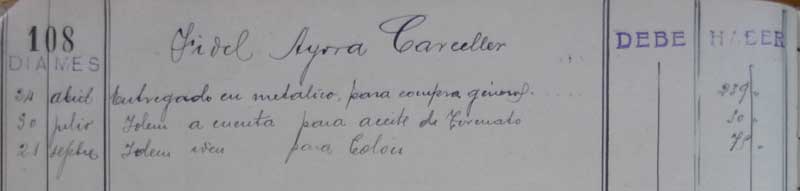 108 Fidel Ayora Carceller DEBE HABER
DIA MES
24 abril Entregado en metalico, para compra géneros 239
30 julio Idem a cuenta para aceite de Torenato 30
21 sepbre Idem iden para Colón 75